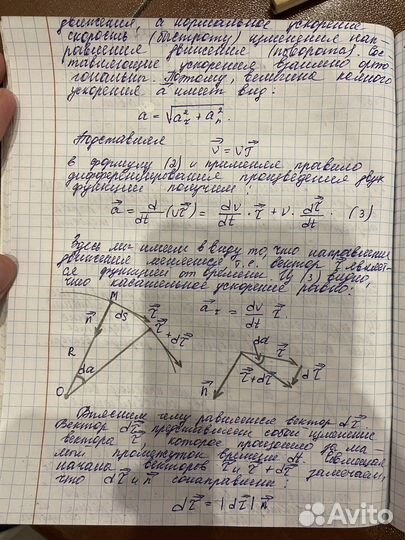 движения, а нормальное ускорение
скорость (быстроту) изменения нап
равления движения (поворота). Сос
тавляющие ускорения взаимно орто
гональны. Поэтому, величина полного
ускорения a имеет вид:
a = √(a²τ + a²n)
Подставляя
v⃗ = vτ⃗
в формулу (2) и применяя правило
дифференцирования произведения двух
функции получим:
a⃗ = d/dt (vτ⃗) = dv/dt · τ⃗ + v · dτ⃗/dt · (3)
Здесь мы имеем в виду то что направление
движения меняется т.е. вектор τ⃗ являет-
ся функцией от времени. Из (3) видно,
что касательное ускорение равно:
a⃗τ = dv/dt τ⃗.
M
n⃗
ds
τ⃗
τ⃗ + dτ⃗
R
dα
O
dα
τ⃗
dτ⃗
n⃗
τ⃗+dτ⃗
Выясним чему равняется вектор dτ⃗.
Вектор dτ⃗ представляет собой изменение
вектора τ⃗, которое произошло за ма-
лый промежуток времени dt. Совмещая
начала векторов τ⃗ и τ⃗ + dτ⃗ замечаем,
что dτ⃗ и n⃗ сонаправлены:
dτ⃗ = |dτ⃗| n⃗
Avito